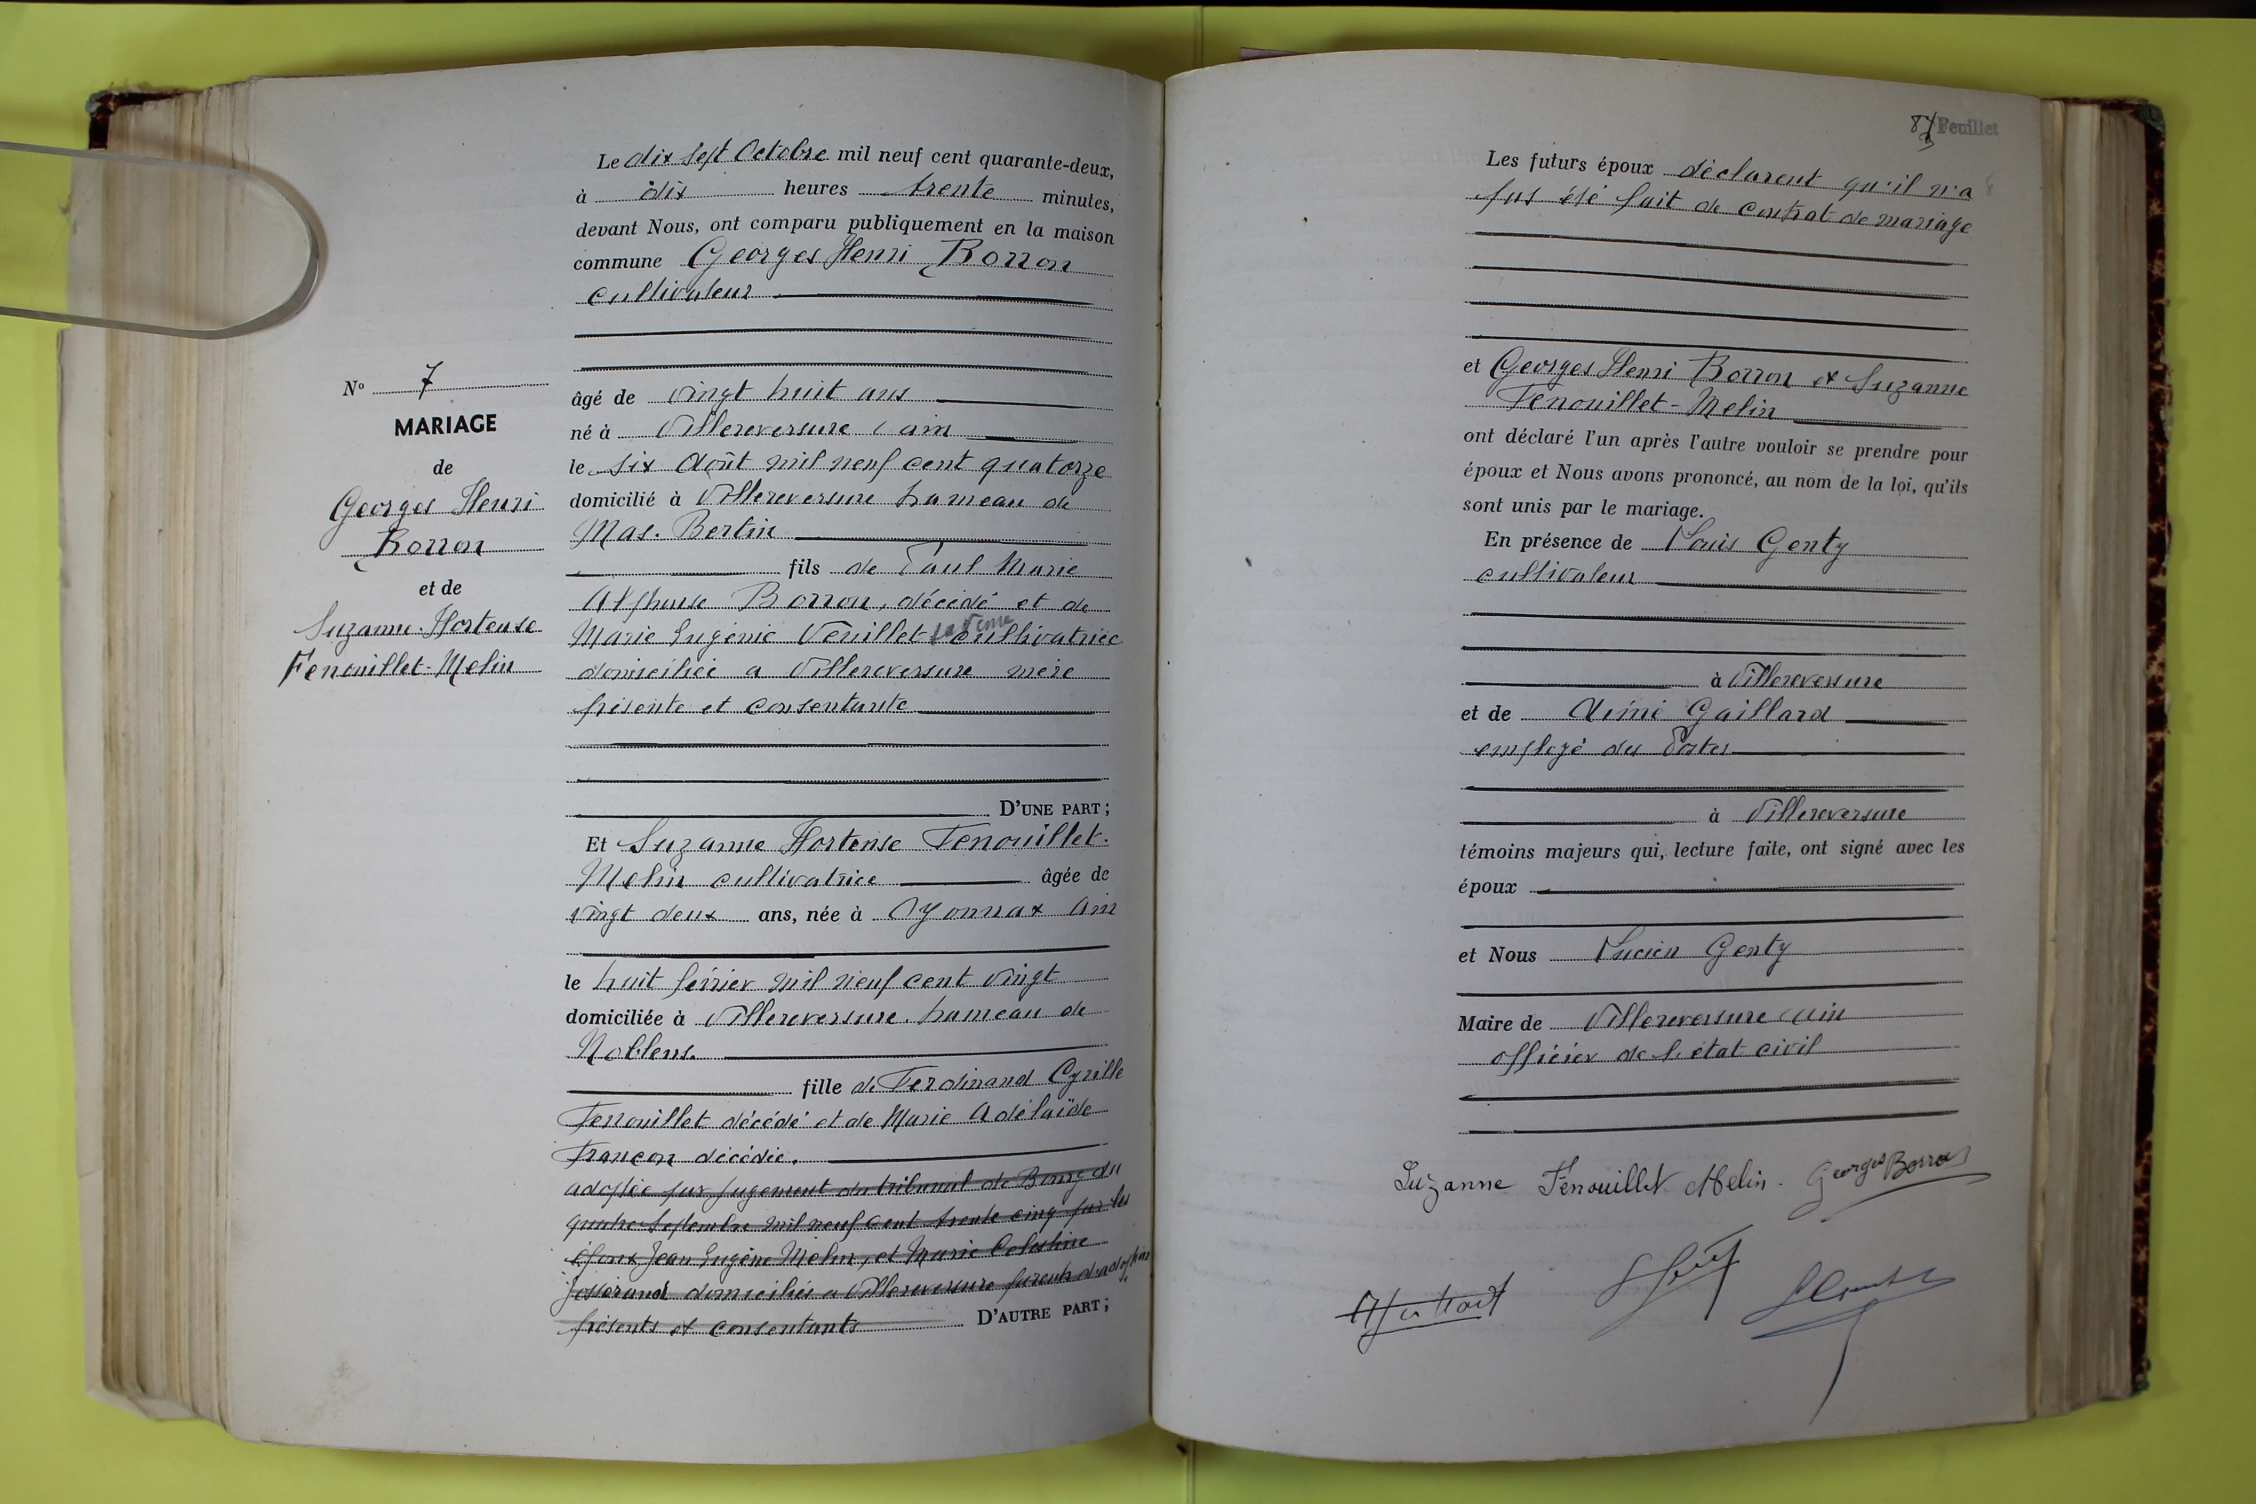 Le dix sept Octobre mil neuf cent quarante-deux,
à dix heures trente minutes,
devant Nous, ont comparu publiquement en la maison
commune Georges Henri Borron
cultivateur
N° 7
MARIAGE
de
Georges Henri
Borron
et de
Suzanne Hortense
Fenouillet-Melin
âgé de vingt huit ans
né à Villereversure Ain
le six Août mil neuf cent quatorze
domicilié à Villereversure hameau de
Mas. Bertin
fils de Paul Marie
Alphonse Borron, décédé et de
Marie Eugénie Veuillet sa veuve cultivatrice
domiciliée a Villereversure mère
présente et consentante
D'UNE PART;
Et Suzanne Hortense Fenouillet.
Melin cultivatrice âgée de
vingt deux ans, née à Oyonnax Ain
le huit février mil neuf cent vingt
domiciliée à Villereversure. hameau de
Noblens.
fille de Ferdinand Cyrille
Fenouillet décédé et de Marie Adélaïde
Françon décédée.
adoptée par jugement du tribunal de Bourg du
quatre Septembre mil neuf cent trente cinq par les
époux Jean Eugène Melin, et Marie Célestine
Josserand domiciliés a Villereversure parents d'adoption
présents et consentants D'AUTRE PART;
Feuillet
Les futurs époux déclarent qu'il n'a
pas été fait de contrat de mariage
et Georges Henri Borron et Suzanne
Fenouillet-Melin
ont déclaré l'un après l'autre vouloir se prendre pour
époux et Nous avons prononcé, au nom de la loi, qu'ils
sont unis par le mariage.
En présence de Louis Genty
cultivateur
à Villereversure
et de Aimé Gaillard
employé des Postes
à Villereversure
témoins majeurs qui, lecture faite, ont signé avec les
époux
et Nous Lucien Genty
Maire de Villereversure Ain
officier de l'état civil
Suzanne Fenouillet Melin. Georges Borron